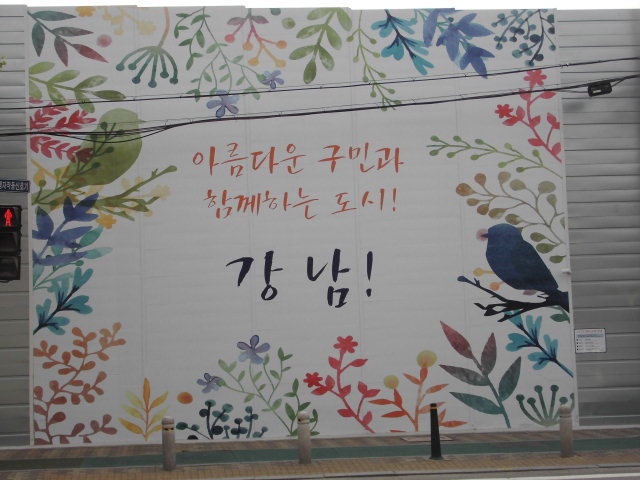 아름다운 구민과
함께하는 도시!
강남!